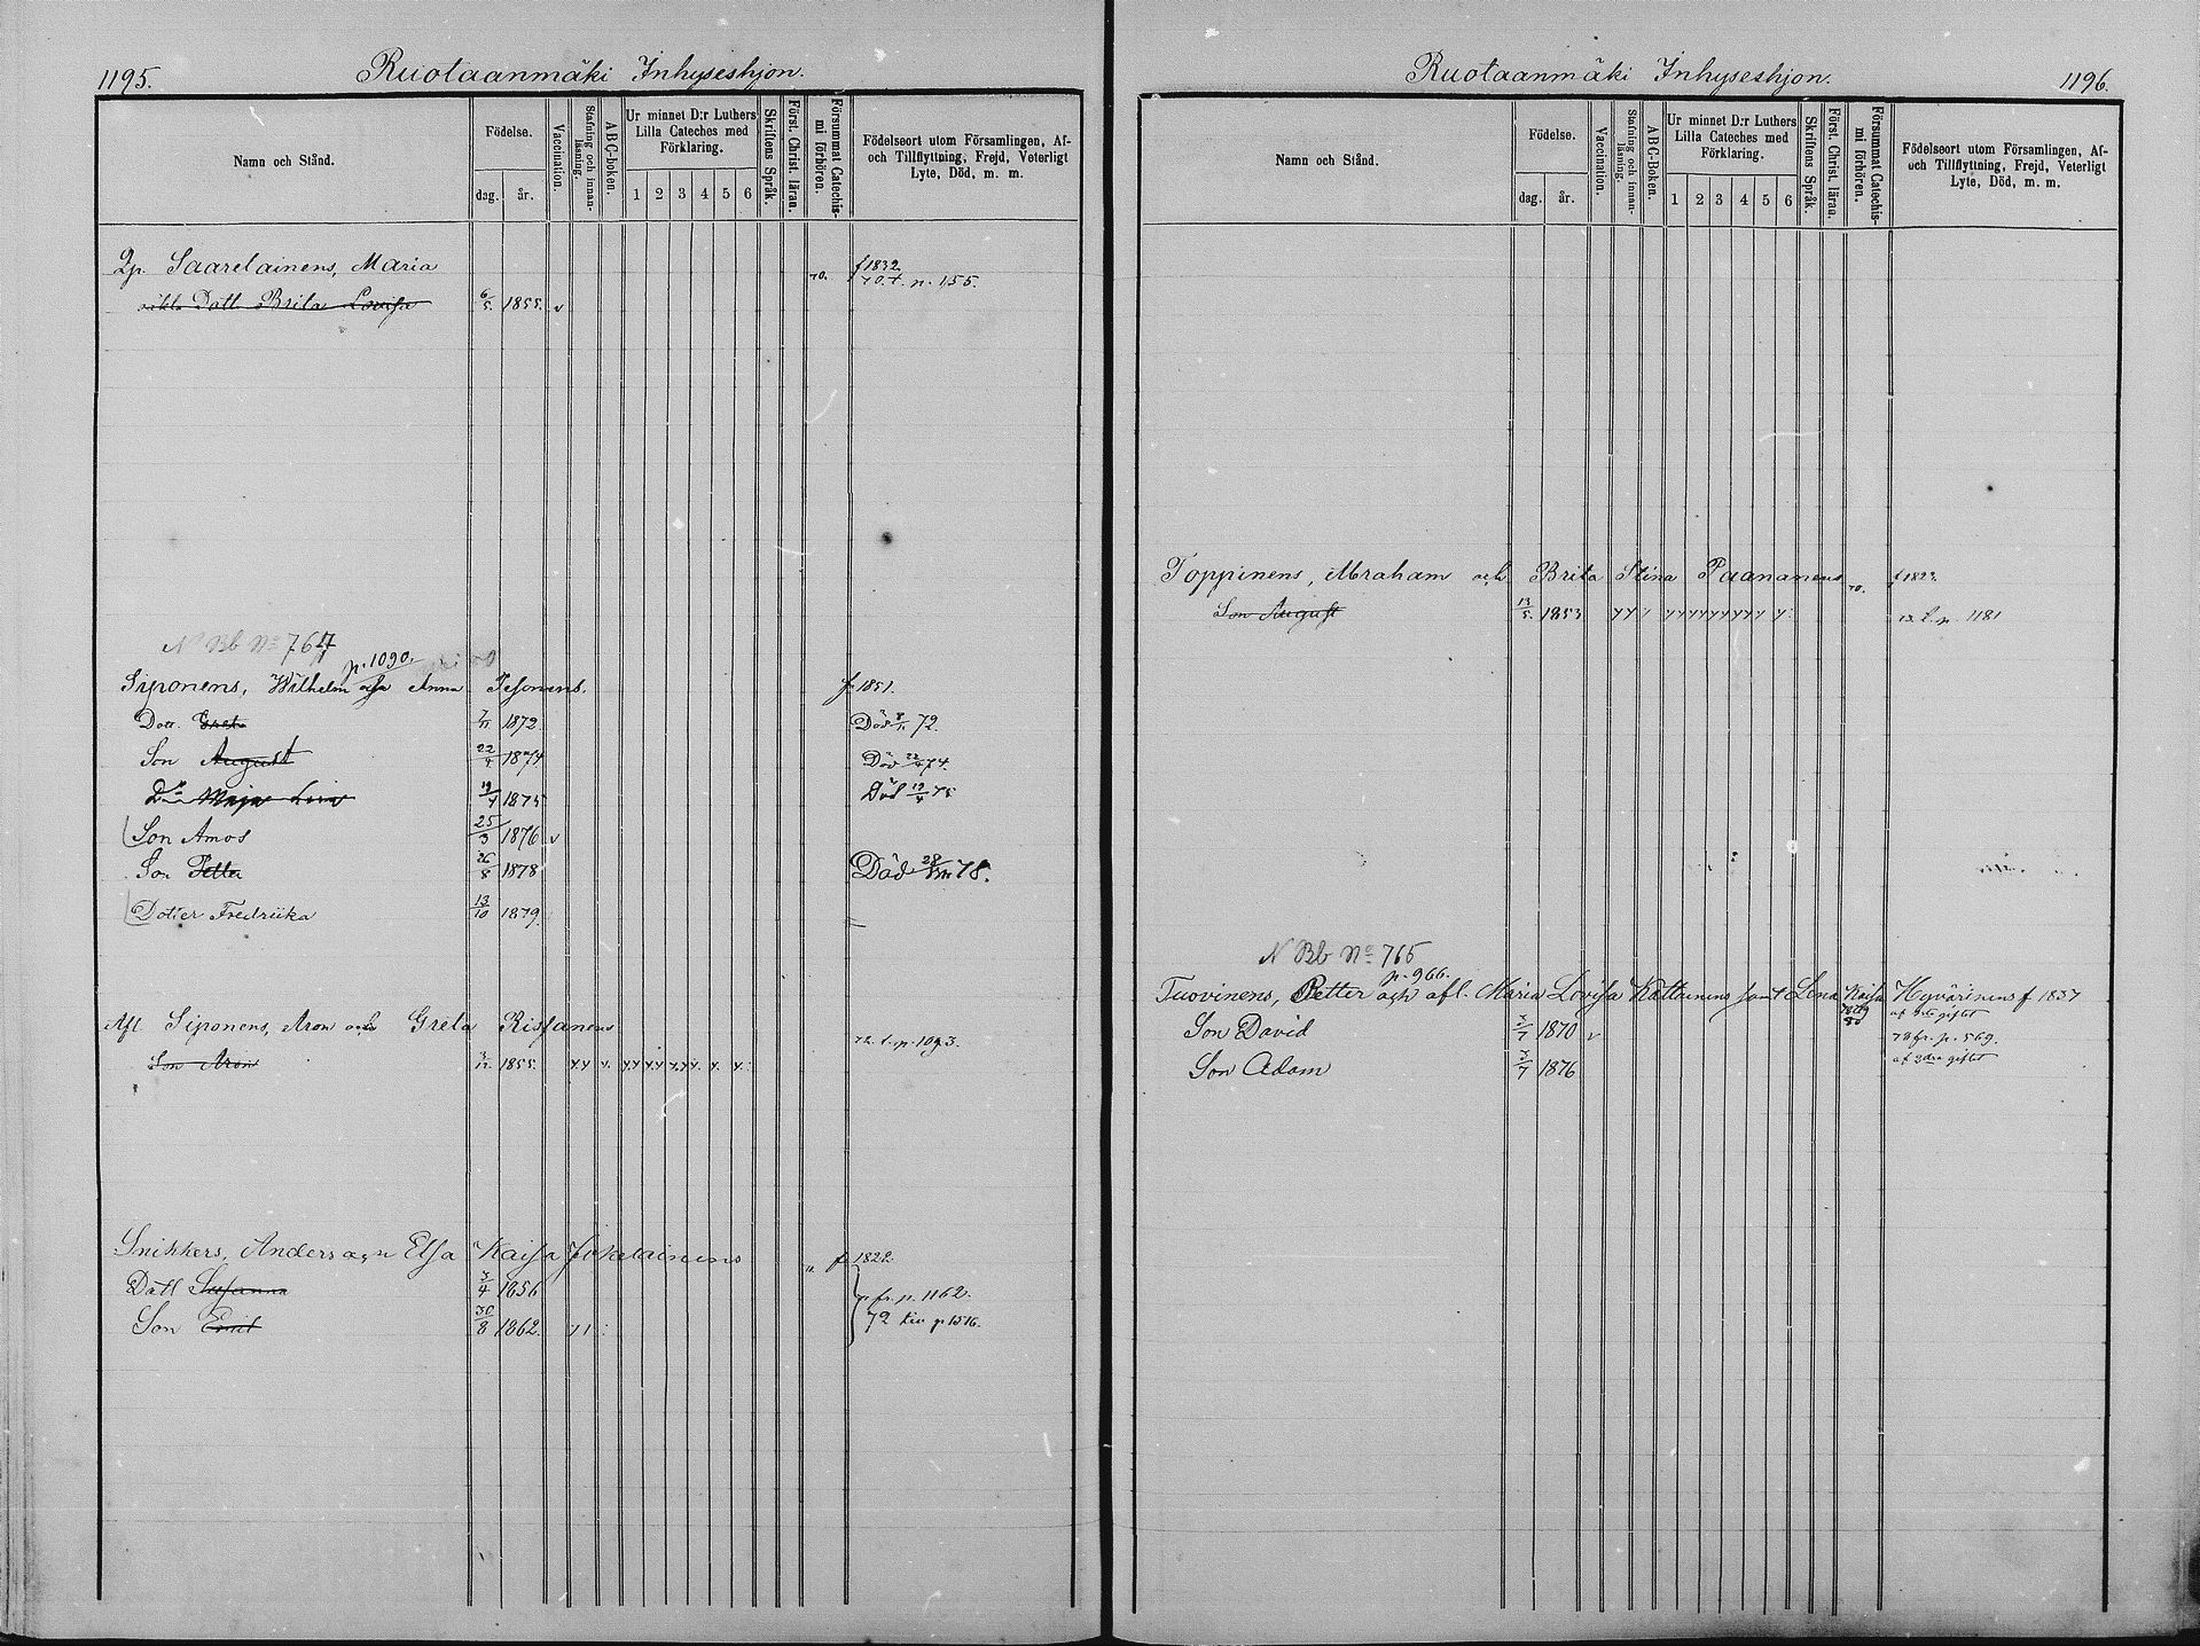 1195.
Ruotaanmäki Inhyseshjon.
Namn och Stånd.
Födelse.
dag. år.
Vaccination.
Stafning och innan-
läsning.
ABC-boken.
Ur minnet D:r Luthers
Lilla Cateches med
Förklaring.
1 2 3 4 5 6
Skriftens Språk.
Först. Christ. läran.
Försummat Catechis-
mi förhören.
Födelseort utom Församlingen, Af-
och Tillflyttning, Frejd, Veterligt
Lyte, Död, m. m.
Qp. Saarelainens, Maria 70. f 1832
70. t. p. 155.
Dott. Brita Lovisa 6/5. 1855. v
N Bb No 764
p. 1090.
Siponens, Wilhelm och Anna f. 1851.
Dott. Greta 1872. Död 72.
Son August 22/4 1874 Död 22/4 74.
Maja Lisa 19/4 1875 Död 19/4 75
Son Amos 25/3 1876 v
Son Petter 26/8 1878 Död 78.
Dotter Fredriika 13/10 1879.
Afl. Siponens, Aron och Greta Rissanens
72. t. p. 1093.
Son Aron 1855.
Snikkers, Anders och Elsa Kaisa Jokelainens f. 1822.
Dott Susanna 3/4 1856 fr. p. 1162.
Son Enok 30/8 1862. 72 p 1516.
Ruotaanmäki Inhyseshjon.
1196.
Namn och Stånd.
Födelse.
dag. år.
Vaccination.
Stafning och innan-
läsning.
ABC-Boken.
Ur minnet D:r Luthers
Lilla Cateches med
Förklaring.
1 2 3 4 5 6
Skriftens Språk.
Först. Christ. läran.
Försummat Catechis-
mi förhören.
Födelseort utom Församlingen, Af-
och Tillflyttning, Frejd, Veterligt
Lyte, Död, m. m.
Toppinens, Abraham och Brita Stina Paananens 70.
Son August 13/5. 1853 t. p. 1181
N Bb No 765
p. 966.
Tuovinens, Petter och afl. Maria Lovisa Kattainens samt Lena Kaisa Hyvärinens f 1837
af giftet
Son David 3/7 1870 v 78 fr. p. 569.
af 2dra giftet
Son Adam 3/7 1876